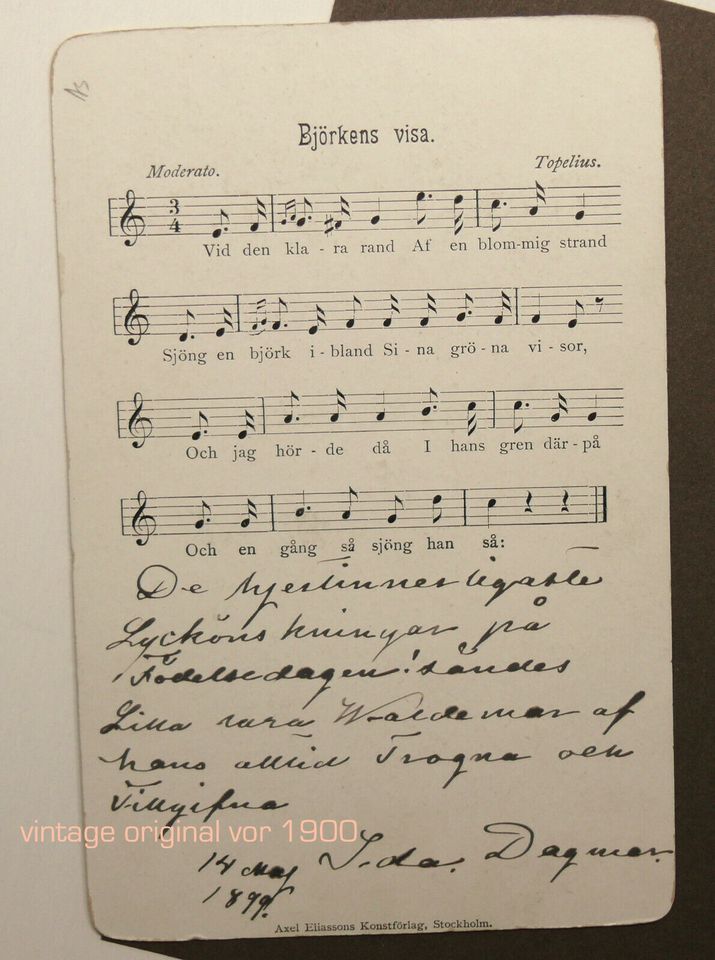 Björkens visa.
Moderato. Topelius.
3
4
Vid den kla - ra rand Af en blom-mig strand
Sjöng en björk i - bland Si - na grö - na vi - sor,
Och jag hör - de då I hans gren där - på
Och en gång så sjöng han så:
De hjertinnerligaste
Lyckönskningar på
Födelsedagen! sändes
Lilla rara Waldemar af
hans alltid Trogna och
Tillgifna
vintage original vor 1900
14 Maj Ida. Dagmar.
1899.
Axel Eliassons Konstförlag, Stockholm.